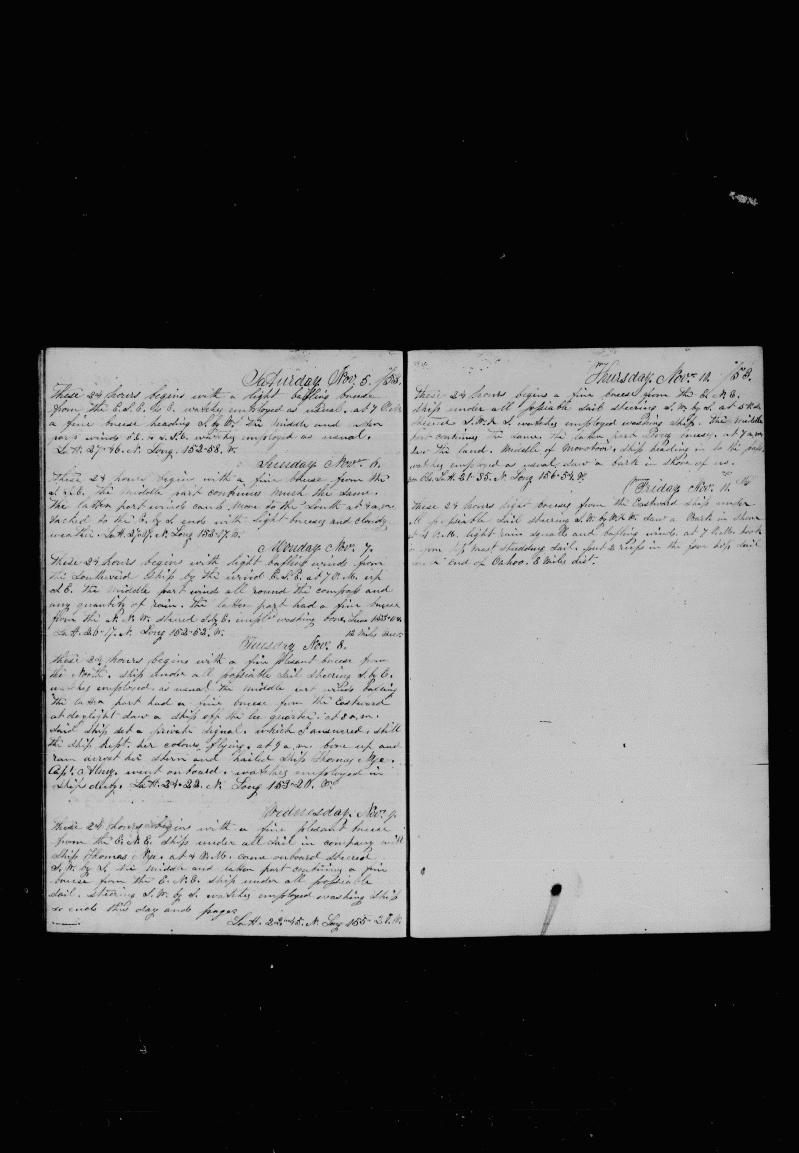 Saturday Nov. 5. /53.
These 24 hours begins with a light baffling breeze
from the E.S.E. to E. watches employed as usual. at 7
a fine breeze heading S. by W. the middle and
part winds S.E. & S.S.E. watches employed as usual.
Latt. 27-46. N. Long. 152-58. W.
Sunday Novr. 6.
These 24 hours begins with a fine breeze from the
S.E. the middle part continues much the same.
the latter part winds came more to the South at 4 a.m.
tacked to the E. & S. ends with light breezes and cloudy
weather. Latt. N. Long 153-17. W.
Monday Nov. 7.
These 24 hours begins with light baffling winds from
the Southward Ship by the wind E.S.E. at 7 P.M. up
S.E. the middle part winds all round the compass and
any quantity of rain. the latter part had a fine breeze
from the N.N.W. steered S. by E. empld. washing bone.
Latt. 26-17. N. Long 152-52. W. 12 Miles
Tuesday Nov. 8.
these 24 hours begins with a fine pleasant breeze from
the North. ship under all possiable sail steering S. by E.
watches employed as usual the middle winds
the latter part had a fine breeze from the Eastward
at daylight saw a ship off the lee quarter. at 8 a.m.
said ship set a private signal. which I answered. still
the ship kept her colours flying. at 9 a.m. bore up and
ran across his stern and hailed Ship Thomas Nye.
Capt. went on board. watches employed in
ship duty. Latt. 24-22. N. Long 153-20. W.
Wednesday. Nov. 9.
these 24 hours begins with a fine pleasant breeze
from the E.N.E. ship under all sail in company with
Ship Thomas Nye. at 4 P.M. came onboard steered
S.W. by S. the middle and latter part continues a fine
breeze from the E.N.E. ship under all possiable
sail. steering S.W. by S. watches employed washing ship
so ends this day and pages
Latt. 22-45. N. Long 155-21. W.
Thursday. Novr. 10. /53.
these 24 hours begins a fine breeze from the E.N.E.
ship under all possiable sail steering S.W. by S. at 5
steered S.W. watches employed washing ship. the middle
part continues the same. the latter part strong breezy. at 7 a.m.
saw the land. ship heading in to the
watches employed as usual saw a bark in shore of us.
Latt. 21-35. N. Long 156-54. W.
Friday Nov. 11.
these 24 hours light breezes from the Eastward ship under
all possiable sail steering S.W. by W. saw a Bark in shore
at 4 P.M. light rain squalls and baffling winds. at 7 P.M. took
in studding sail. put 2 reefs in the fore top sail
end of Oahoo. 8 Miles dist.